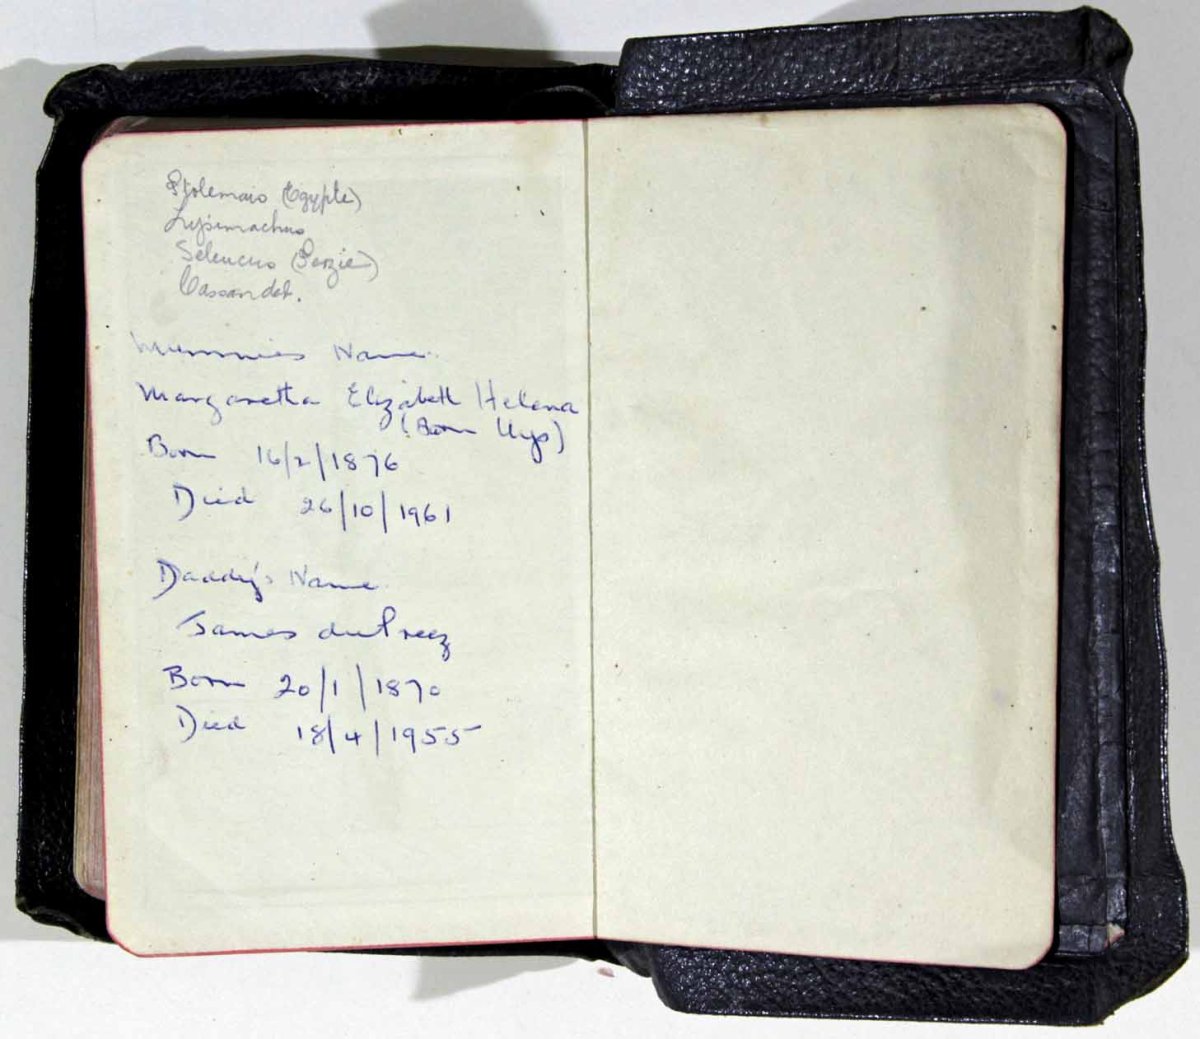 Ptolemais (Egypte)
Lysimachus
Seleucus (Perzie)
Cassander.
Mummies Name.
Margaretha Elizabeth Helena
(Born Uys)
Born 16/2/1876
Died 26/10/1961
Daddy's Name
James du Preez
Born 20/1/1870
Died 18/4/1955